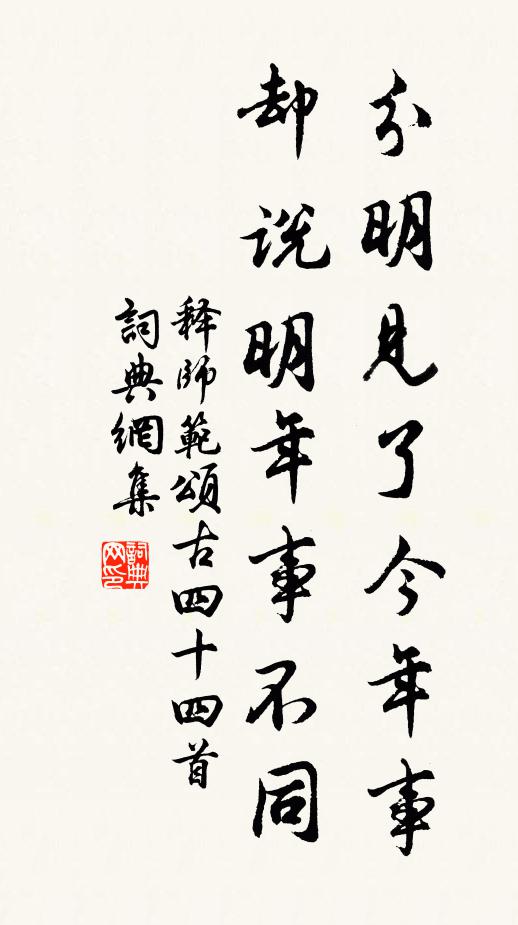 分明見了今年事
却說明年事不同
释師範頌古四十四首
詞典網集
詞典
网印